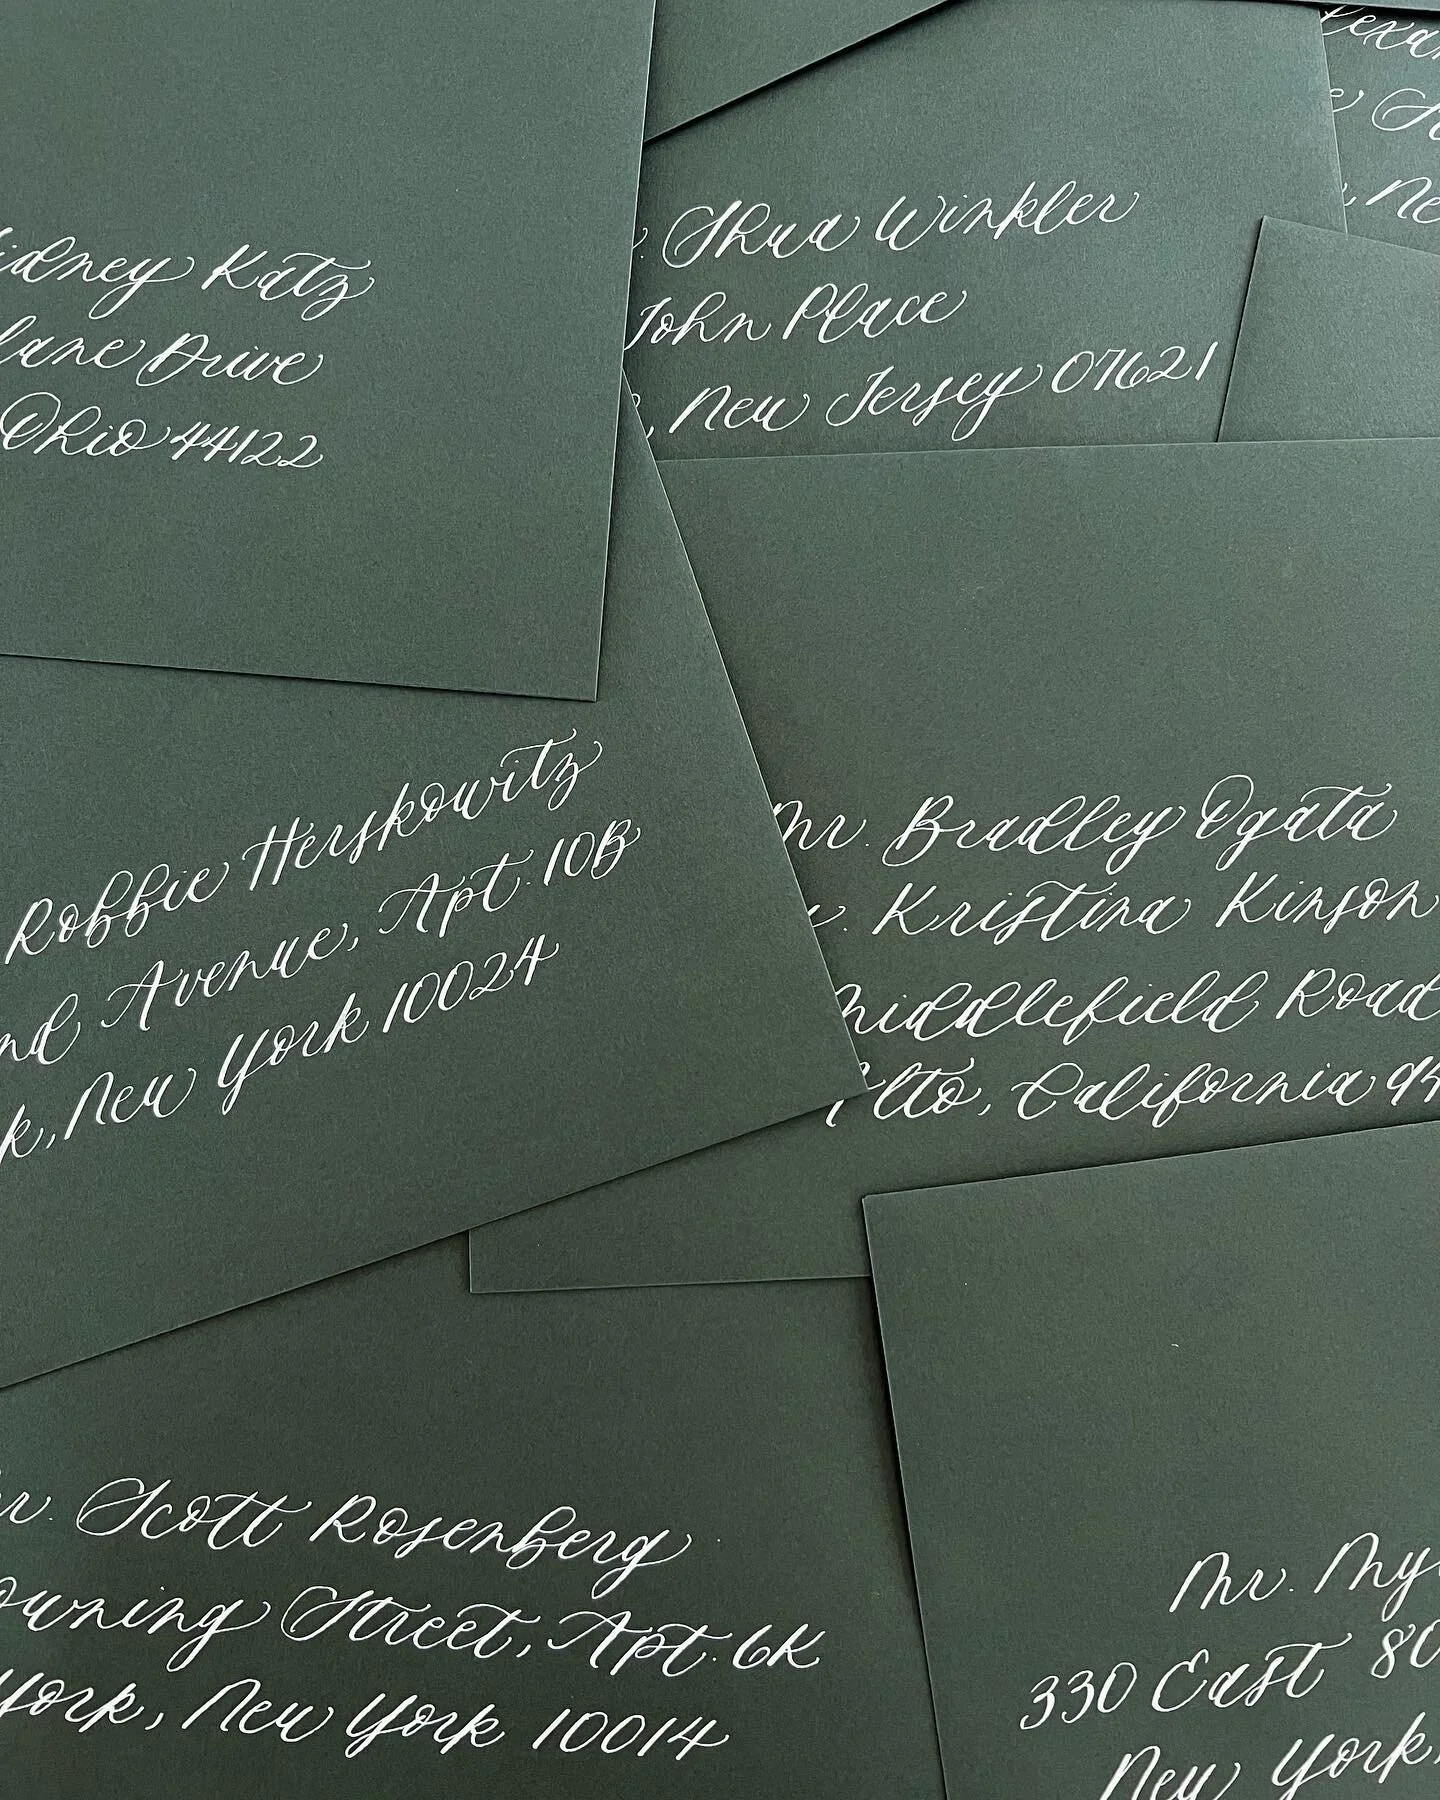 Katz
Drive
Ohio 44122
Shua Winkler
John Place
, New Jersey 07621
Robbie Herskowitz
Avenue, Apt. 10B
, New York 10024
Mr. Bradley Ogata
Kristina Kinson
Middlefield Road
, California
Scott Rosenberg
Street, Apt. 6K
York, New York 10014
Mr.
330 East
New York,